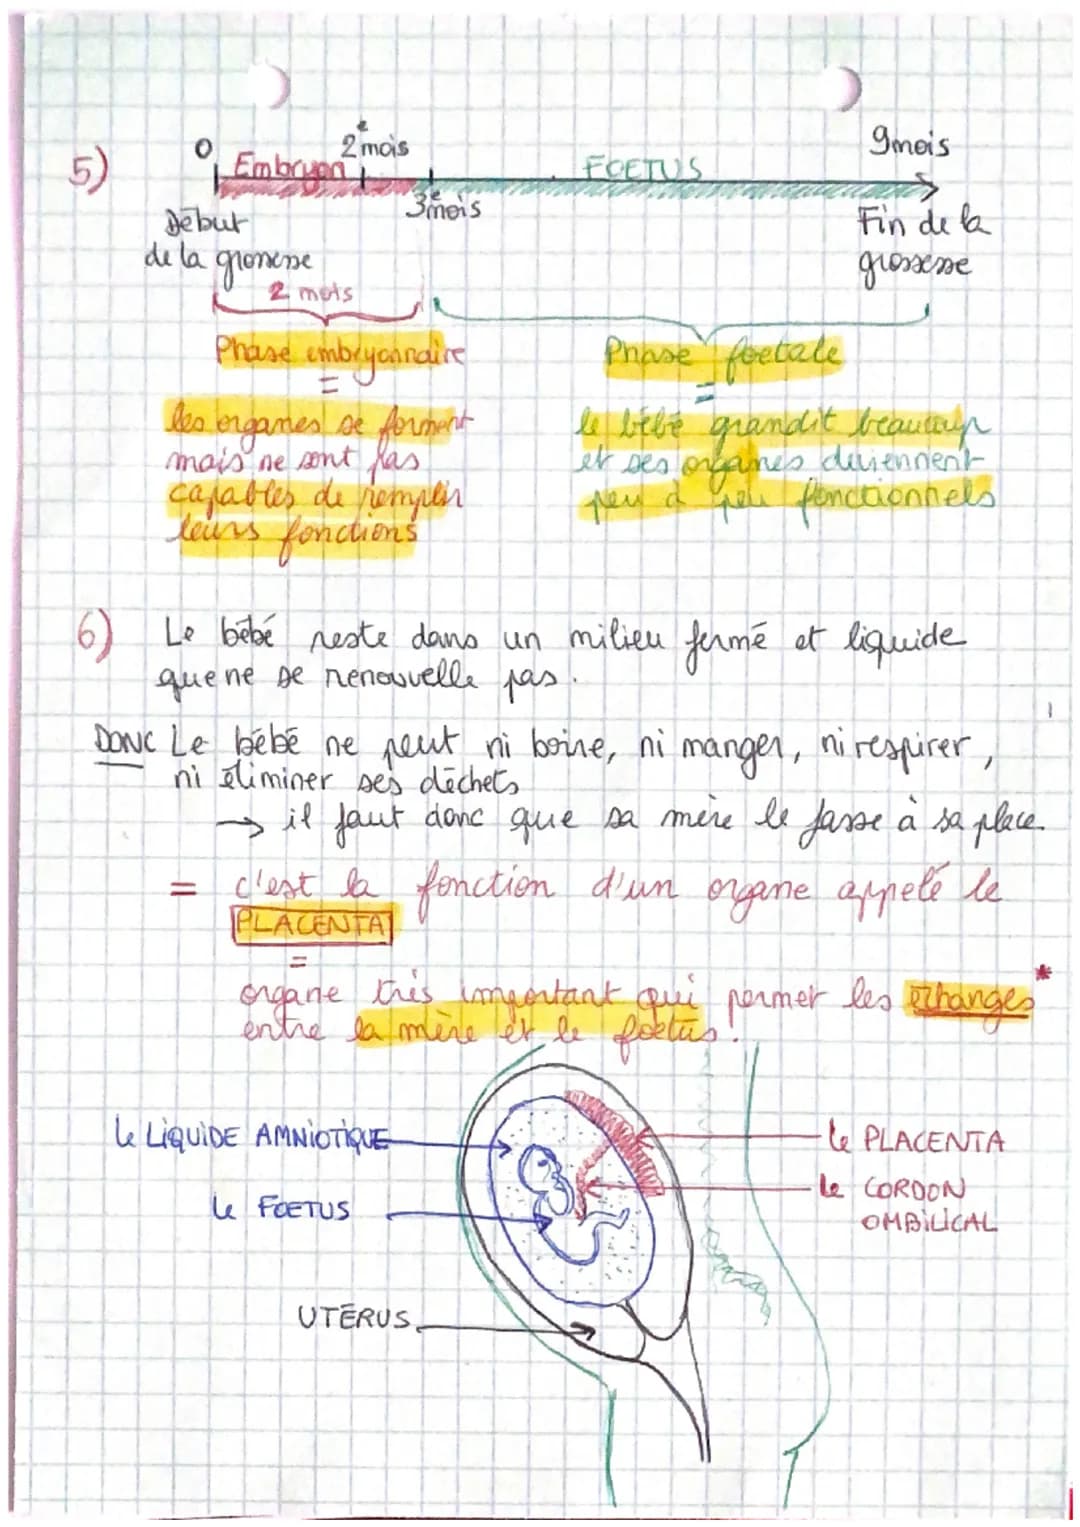 5)
0 2e mois 9mois
Embryon FOETUS
3e mois
Début Fin de la
de la grossesse grossesse
2 mois
Phase embryonnaire Phase foetale
= =
les organes se forment le bébé grandit beaucoup
mais ne sont pas et ses organes deviennent
capables de remplir peu à peu fonctionnels
leurs fonctions
6) Le bébé reste dans un milieu fermé et liquide
que ne se renouvelle pas.
DONC Le bébé ne peut ni boire, ni manger, ni respirer,
ni éliminer ses déchets
→ il faut donc que sa mère le fasse à sa place.
= c'est la fonction d'un organe appelé le
PLACENTA
=
organe très important qui permet les échanges*
entre la mère et le foetus!
Le LIQUIDE AMNIOTIQUE
Le PLACENTA
Le CORDON
OMBILICAL
Le FOETUS
UTÉRUS